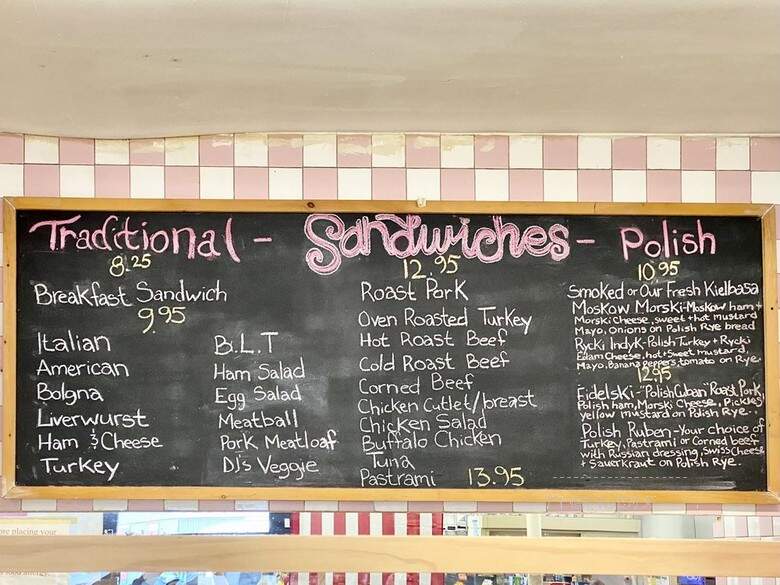 Traditional - Sandwiches - Polish
8.25
Breakfast Sandwich
9.95
Italian
American
Bolgna
Liverwurst
Ham & Cheese
Turkey
B.L.T
Ham Salad
Egg Salad
Meatball
Pork Meatloaf
DJ's Veggie
12.95
Roast Pork
Oven Roasted Turkey
Hot Roast Beef
Cold Roast Beef
Corned Beef
Chicken Cutlet/breast
Chicken Salad
Buffalo Chicken
Tuna
Pastrami 13.95
10.95
Smoked or Our Fresh Kielbasa
Moskow Morski-Moskow ham +
Morski Cheese, sweet + hot mustard
Mayo, Onions on Polish Rye bread
Rycki Indyk-Polish Turkey + Rycki
Edam Cheese, hot + Sweet mustard,
Mayo, Banana Peppers tomato on Rye
12.95
Fidelski - "Polish Cuban" Roast Pork,
Polish ham, Morski Cheese, Pickles,
yellow mustard on Polish Rye.
Polish Ruben-Your choice of
Turkey, Pastrami or Corned beef
with Russian dressing, Swiss Cheese
+ Sauerkraut on Polish Rye.
placing your